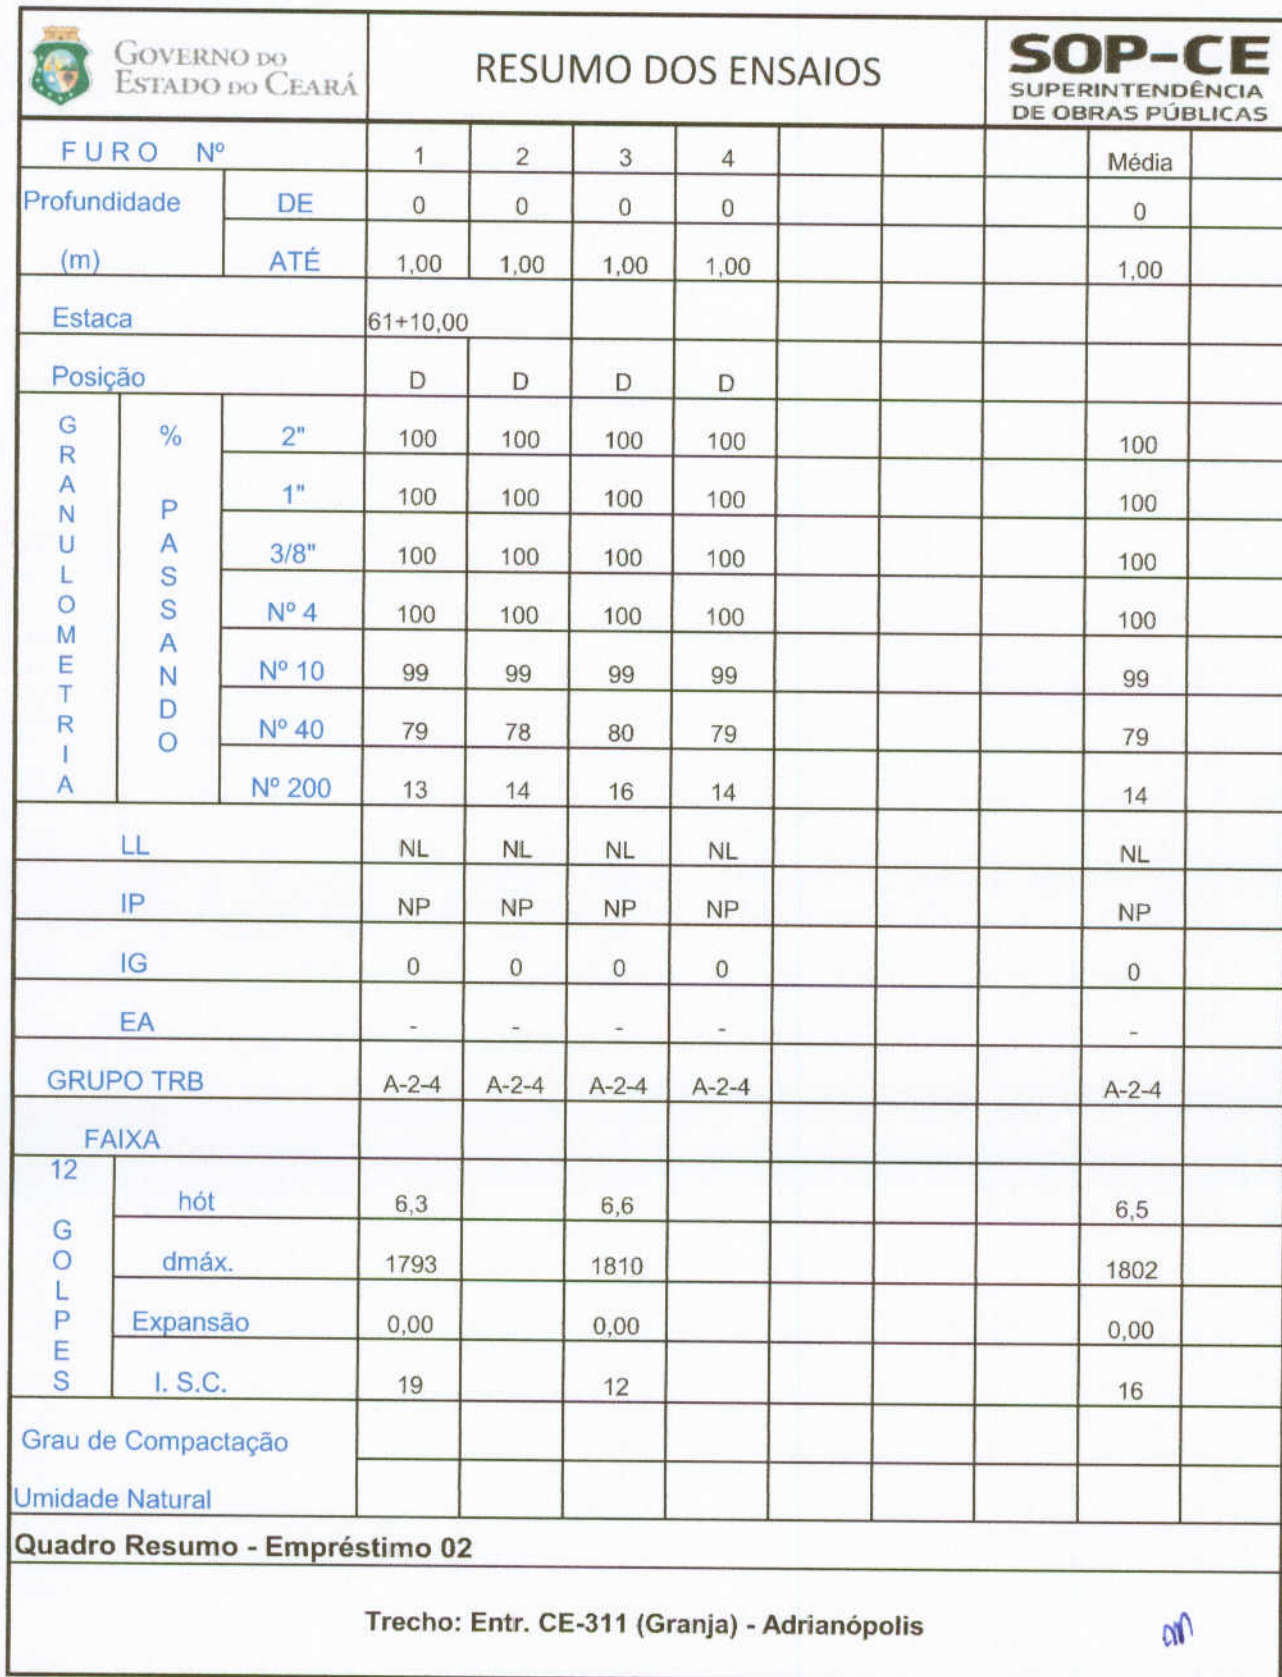 GOVERNO DO
ESTADO DO CEARÁ
RESUMO DOS ENSAIOS
SOP-CE
SUPERINTENDÊNCIA
DE OBRAS PÚBLICAS
FURO Nº 1 2 3 4 Média
Profundidade DE 0 0 0 0 0
(m) ATÉ 1,00 1,00 1,00 1,00 1,00
Estaca 61+10,00
Posição D D D D
GRANULOMETRIA
% PASSANDO
2" 100 100 100 100 100
1" 100 100 100 100 100
3/8" 100 100 100 100 100
Nº 4 100 100 100 100 100
Nº 10 99 99 99 99 99
Nº 40 79 78 80 79 79
Nº 200 13 14 16 14 14
LL NL NL NL NL NL
IP NP NP NP NP NP
IG 0 0 0 0 0
EA - - - - -
GRUPO TRB A-2-4 A-2-4 A-2-4 A-2-4 A-2-4
FAIXA
12 GOLPES
hót 6,3 6,6 6,5
dmáx. 1793 1810 1802
Expansão 0,00 0,00 0,00
I. S.C. 19 12 16
Grau de Compactação
Umidade Natural
Quadro Resumo - Empréstimo 02
Trecho: Entr. CE-311 (Granja) - Adrianópolis